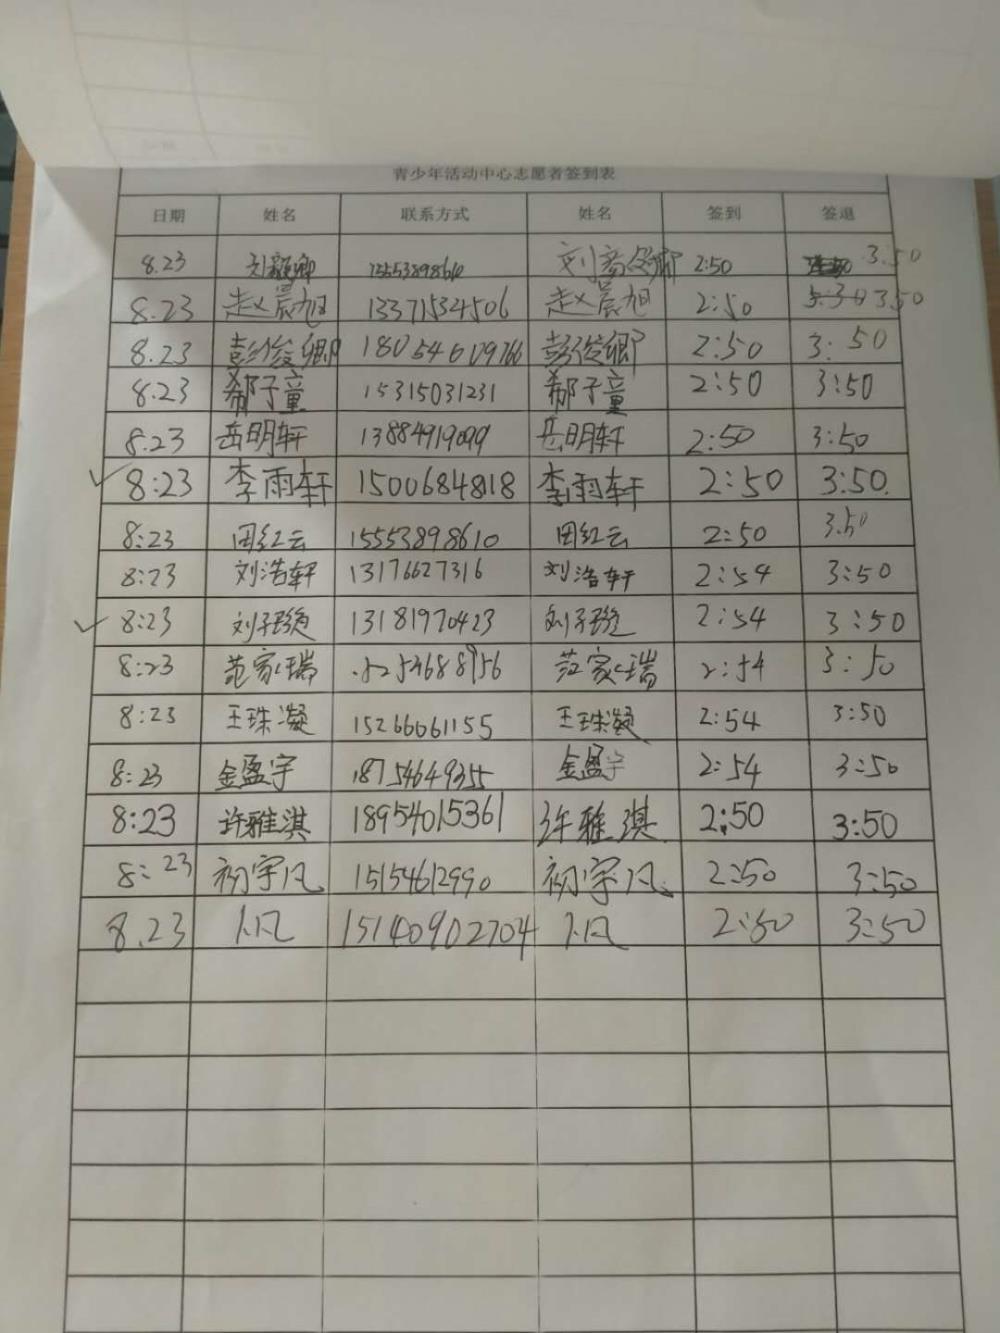 青少年活动中心志愿者签到表
日期 姓名 联系方式 姓名 签到 签退
8.23 2:50 3:50
8.23 赵晨旭 13371534506 赵晨旭 2:50 3:50
8.23 彭俊卿 18054609766 彭俊卿 2:50 3:50
8.23 郗子童 15315031231 郗子童 2:50 3:50
8.23 岳明轩 13884919099 岳明轩 2:50 3:50
8:23 李雨轩 15006848118 李雨轩 2:50 3:50.
8:23 田红云 15553898610 田红云 2:50 3:50
8:23 刘浩轩 13176627316 刘浩轩 2:54 3:50
8:23 13181970423 2:54 3:50
8:23 范家瑞 范家瑞 2:54 3:50
8:23 王珠凝 15266061155 王珠凝 2:54 3:50
8:23 金盈宇 18754649355 金盈宇 2:54 3:50
8:23 许雅淇 18954015361 许雅淇 2:50 3:50
8:23 初宇凡 15154612990 初宇凡 2:50 3:50
8.23 15140902704 2:50 3:50